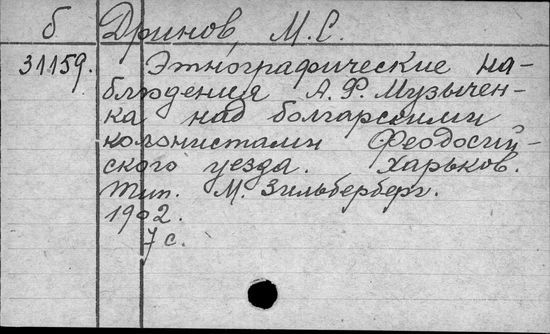 б Дринов, М. С.
31159. Этнографические на-
блюдения А. Ф. Музычен-
ка над болгарскими
колонистами Феодосий-
ского уезда. Харьков.
Тип. М. Зильберберг.
1902.
7 с.